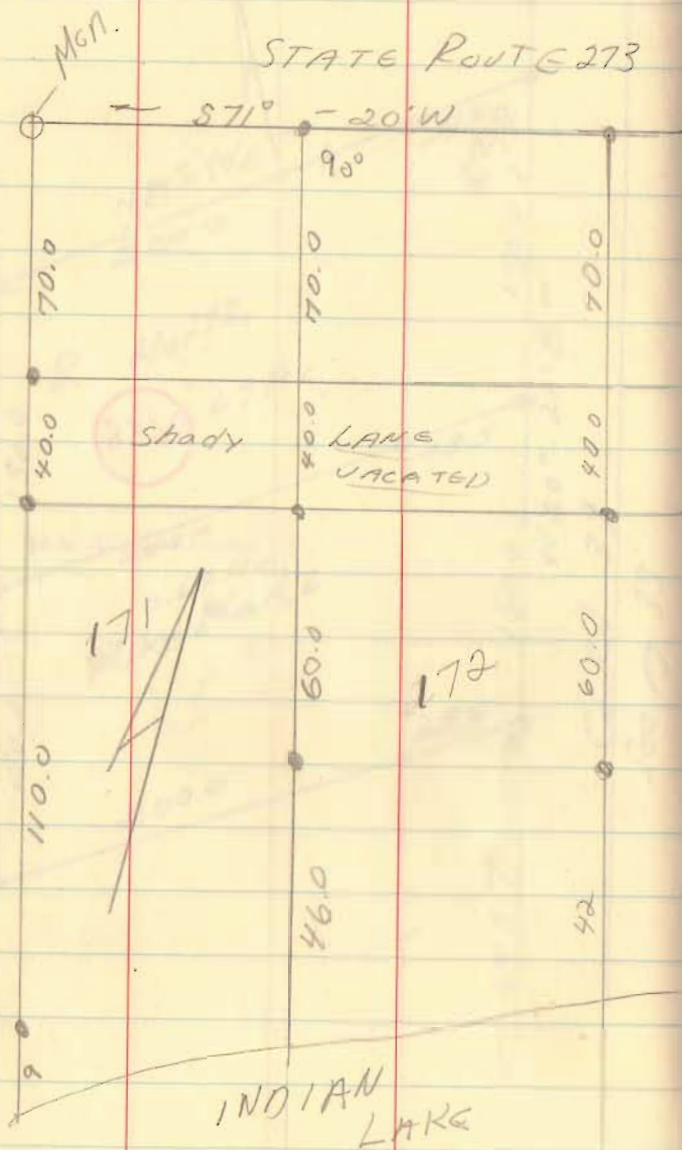 Mon.
STATE ROUTE 273
S71° - 20'W
90°
70.0
70.0
70.0
40.0
Shady
40.0
LANE
VACATED
40.0
171
60.0
172
60.0
110.0
46.0
42
9
INDIAN
LAKE